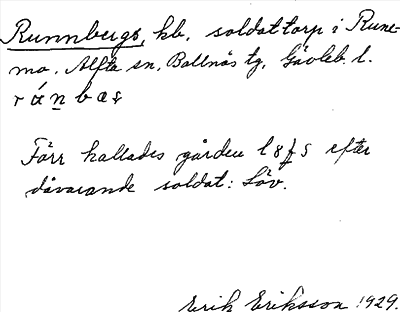 Runnbergs, kb, soldattorp i Rune-
mo, Alfta sn, Bollnäs tg, Gävleb. l.
r á n b æ s
Förr kallades gården l 8 f s efter
dåvarande soldat: Löv.
Erik Eriksson 1929.